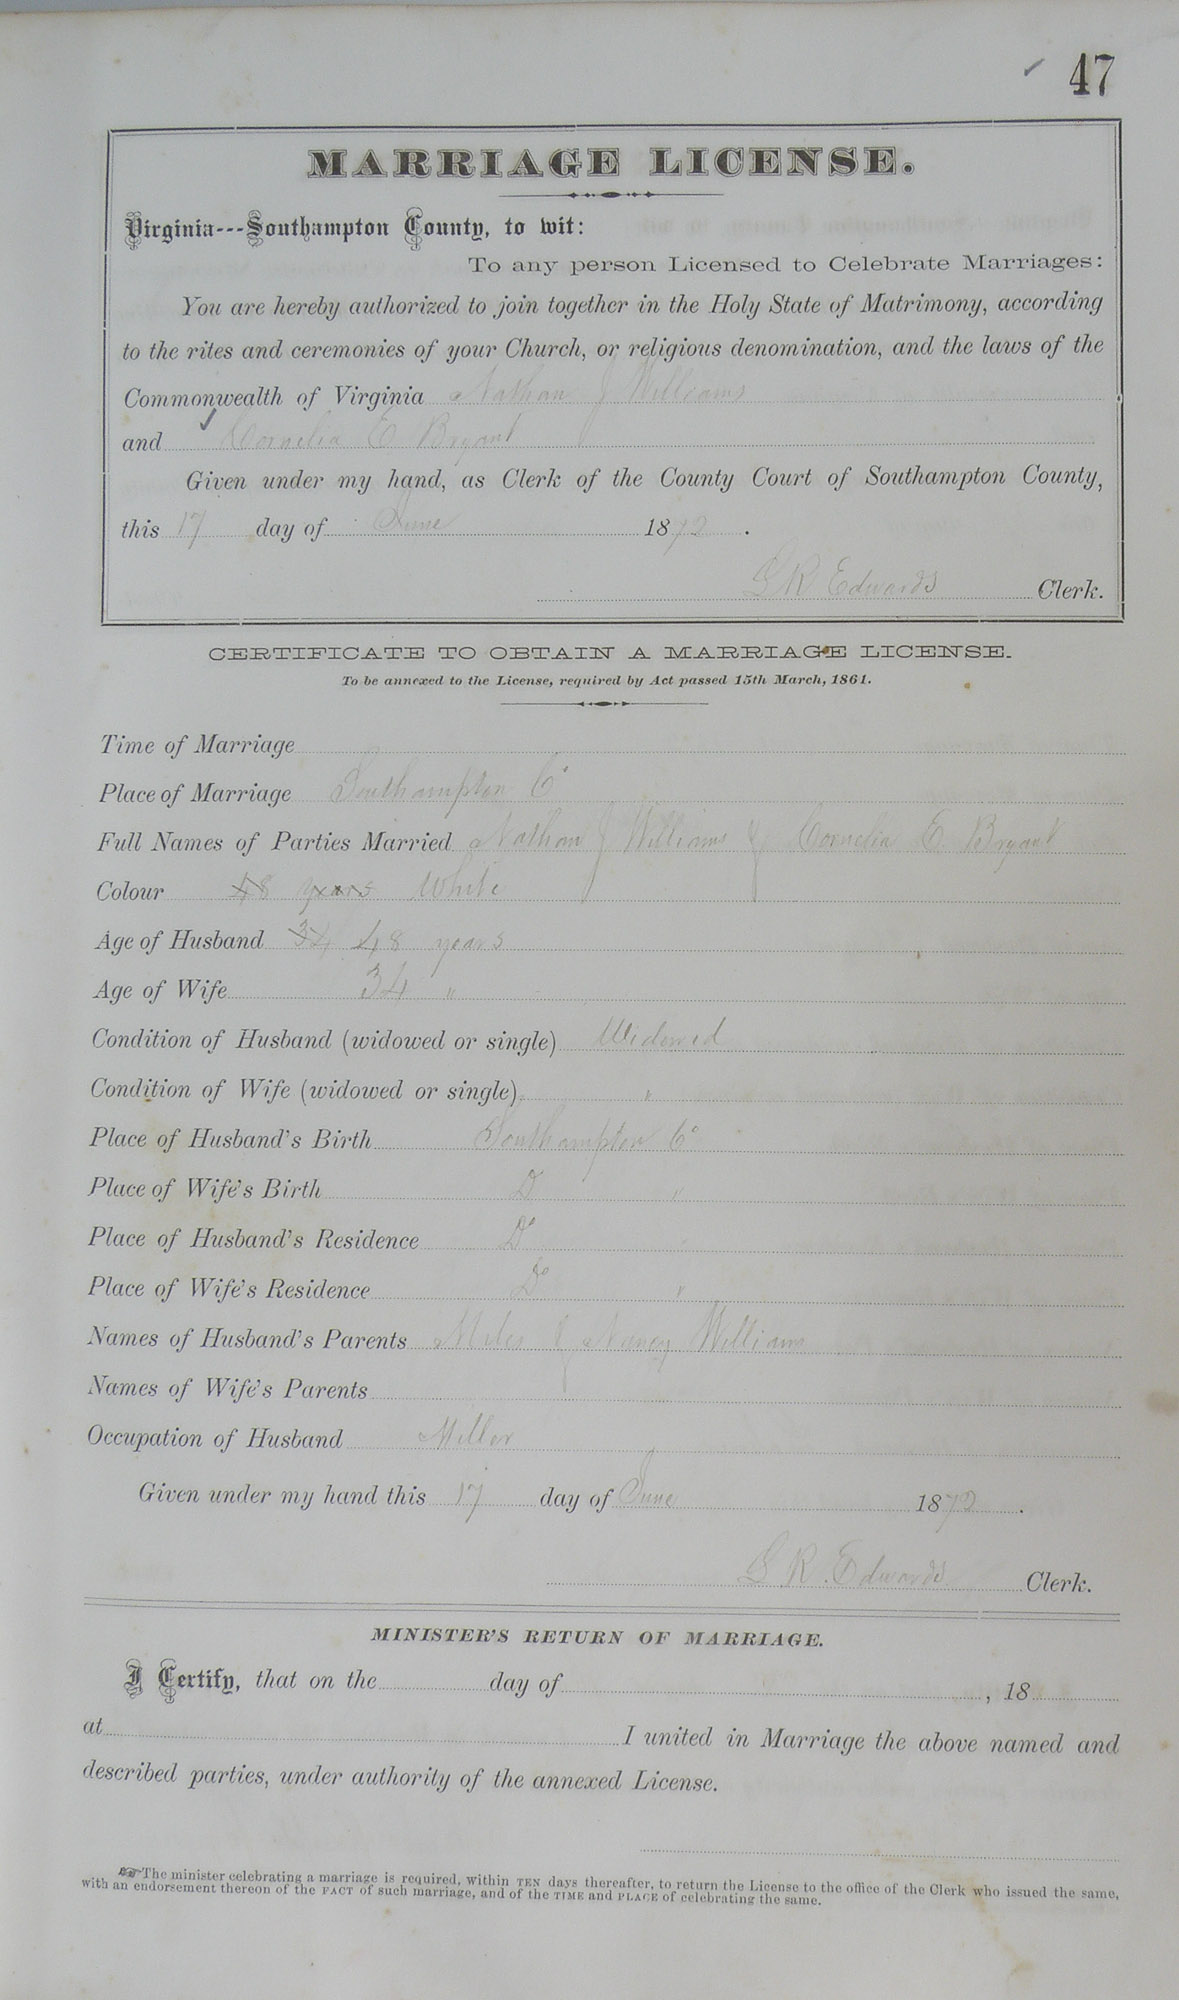 47
MARRIAGE LICENSE.
Virginia---Southampton County, to wit:
To any person Licensed to Celebrate Marriages:
You are hereby authorized to join together in the Holy State of Matrimony, according
to the rites and ceremonies of your Church, or religious denomination, and the laws of the
Commonwealth of Virginia Nathan J Williams
and Cornelia E Bryant
Given under my hand, as Clerk of the County Court of Southampton County,
this 17 day of June 1872.
L R Edwards Clerk.
CERTIFICATE TO OBTAIN A MARRIAGE LICENSE.
To be annexed to the License, required by Act passed 15th March, 1861.
Time of Marriage
Place of Marriage Southampton Co
Full Names of Parties Married Nathan J Williams & Cornelia E. Bryant
Colour 48 years White
Age of Husband 34 48 years
Age of Wife 34 "
Condition of Husband (widowed or single) Widowed
Condition of Wife (widowed or single) "
Place of Husband's Birth Southampton Co
Place of Wife's Birth Do "
Place of Husband's Residence Do
Place of Wife's Residence Do "
Names of Husband's Parents Miles & Nancy Williams
Names of Wife's Parents
Occupation of Husband Miller
Given under my hand this 17 day of June 1872.
L R Edwards Clerk.
MINISTER'S RETURN OF MARRIAGE.
I Certify, that on the day of , 18
at I united in Marriage the above named and
described parties, under authority of the annexed License.
The minister celebrating a marriage is required, within TEN days thereafter, to return the License to the office of the Clerk who issued the same,
with an endorsement thereon of the FACT of such marriage, and of the TIME and PLACE of celebrating the same.